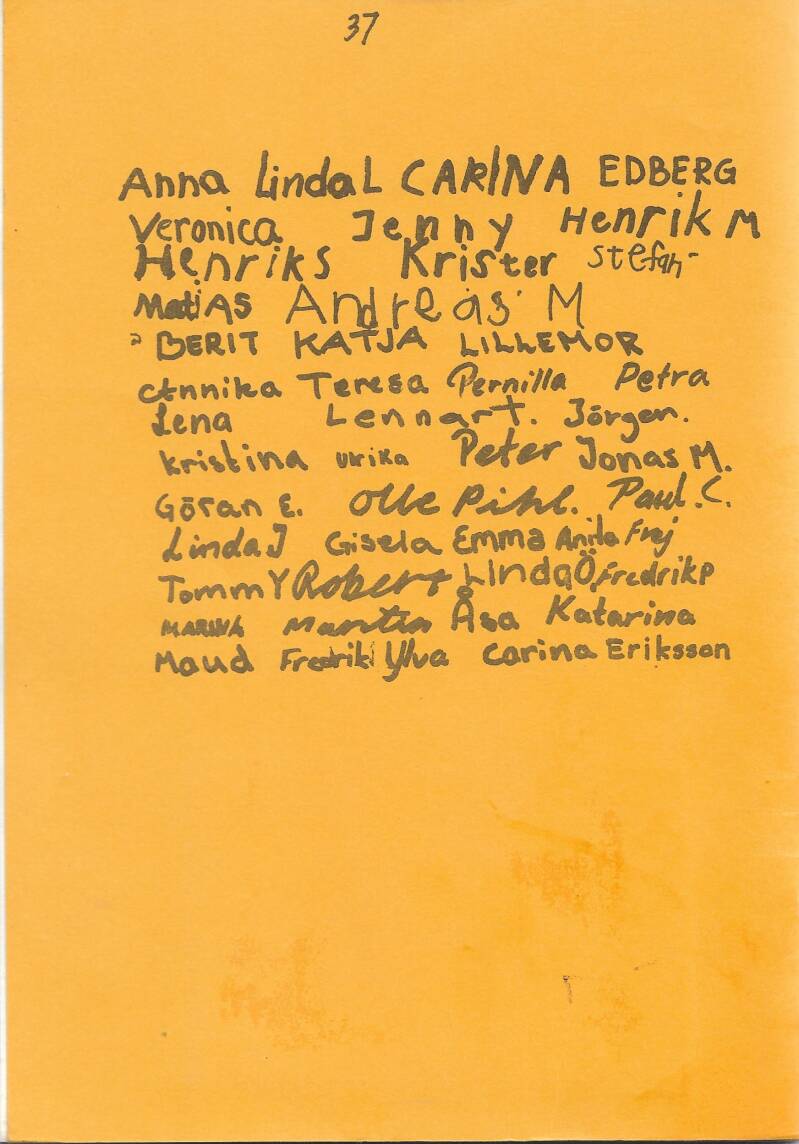 37
Anna Linda L CARINA EDBERG
Veronica Jenny Henrik M
Henrik S Krister Stefan
MatiAS Andreas M
BERIT KATJA LILLEMOR
Annika Teresa Pernilla Petra
Lena Lennart. Jörgen.
Kristina Ulrika Peter Jonas M.
Göran E. Olle Pihl. Paul. C.
Linda J Gisela Emma Anita Frej
TommY Robert Linda Ö, Fredrik P
MARINA Martin Åsa Katarina
Maud Fredrik Ylva Carina Eriksson